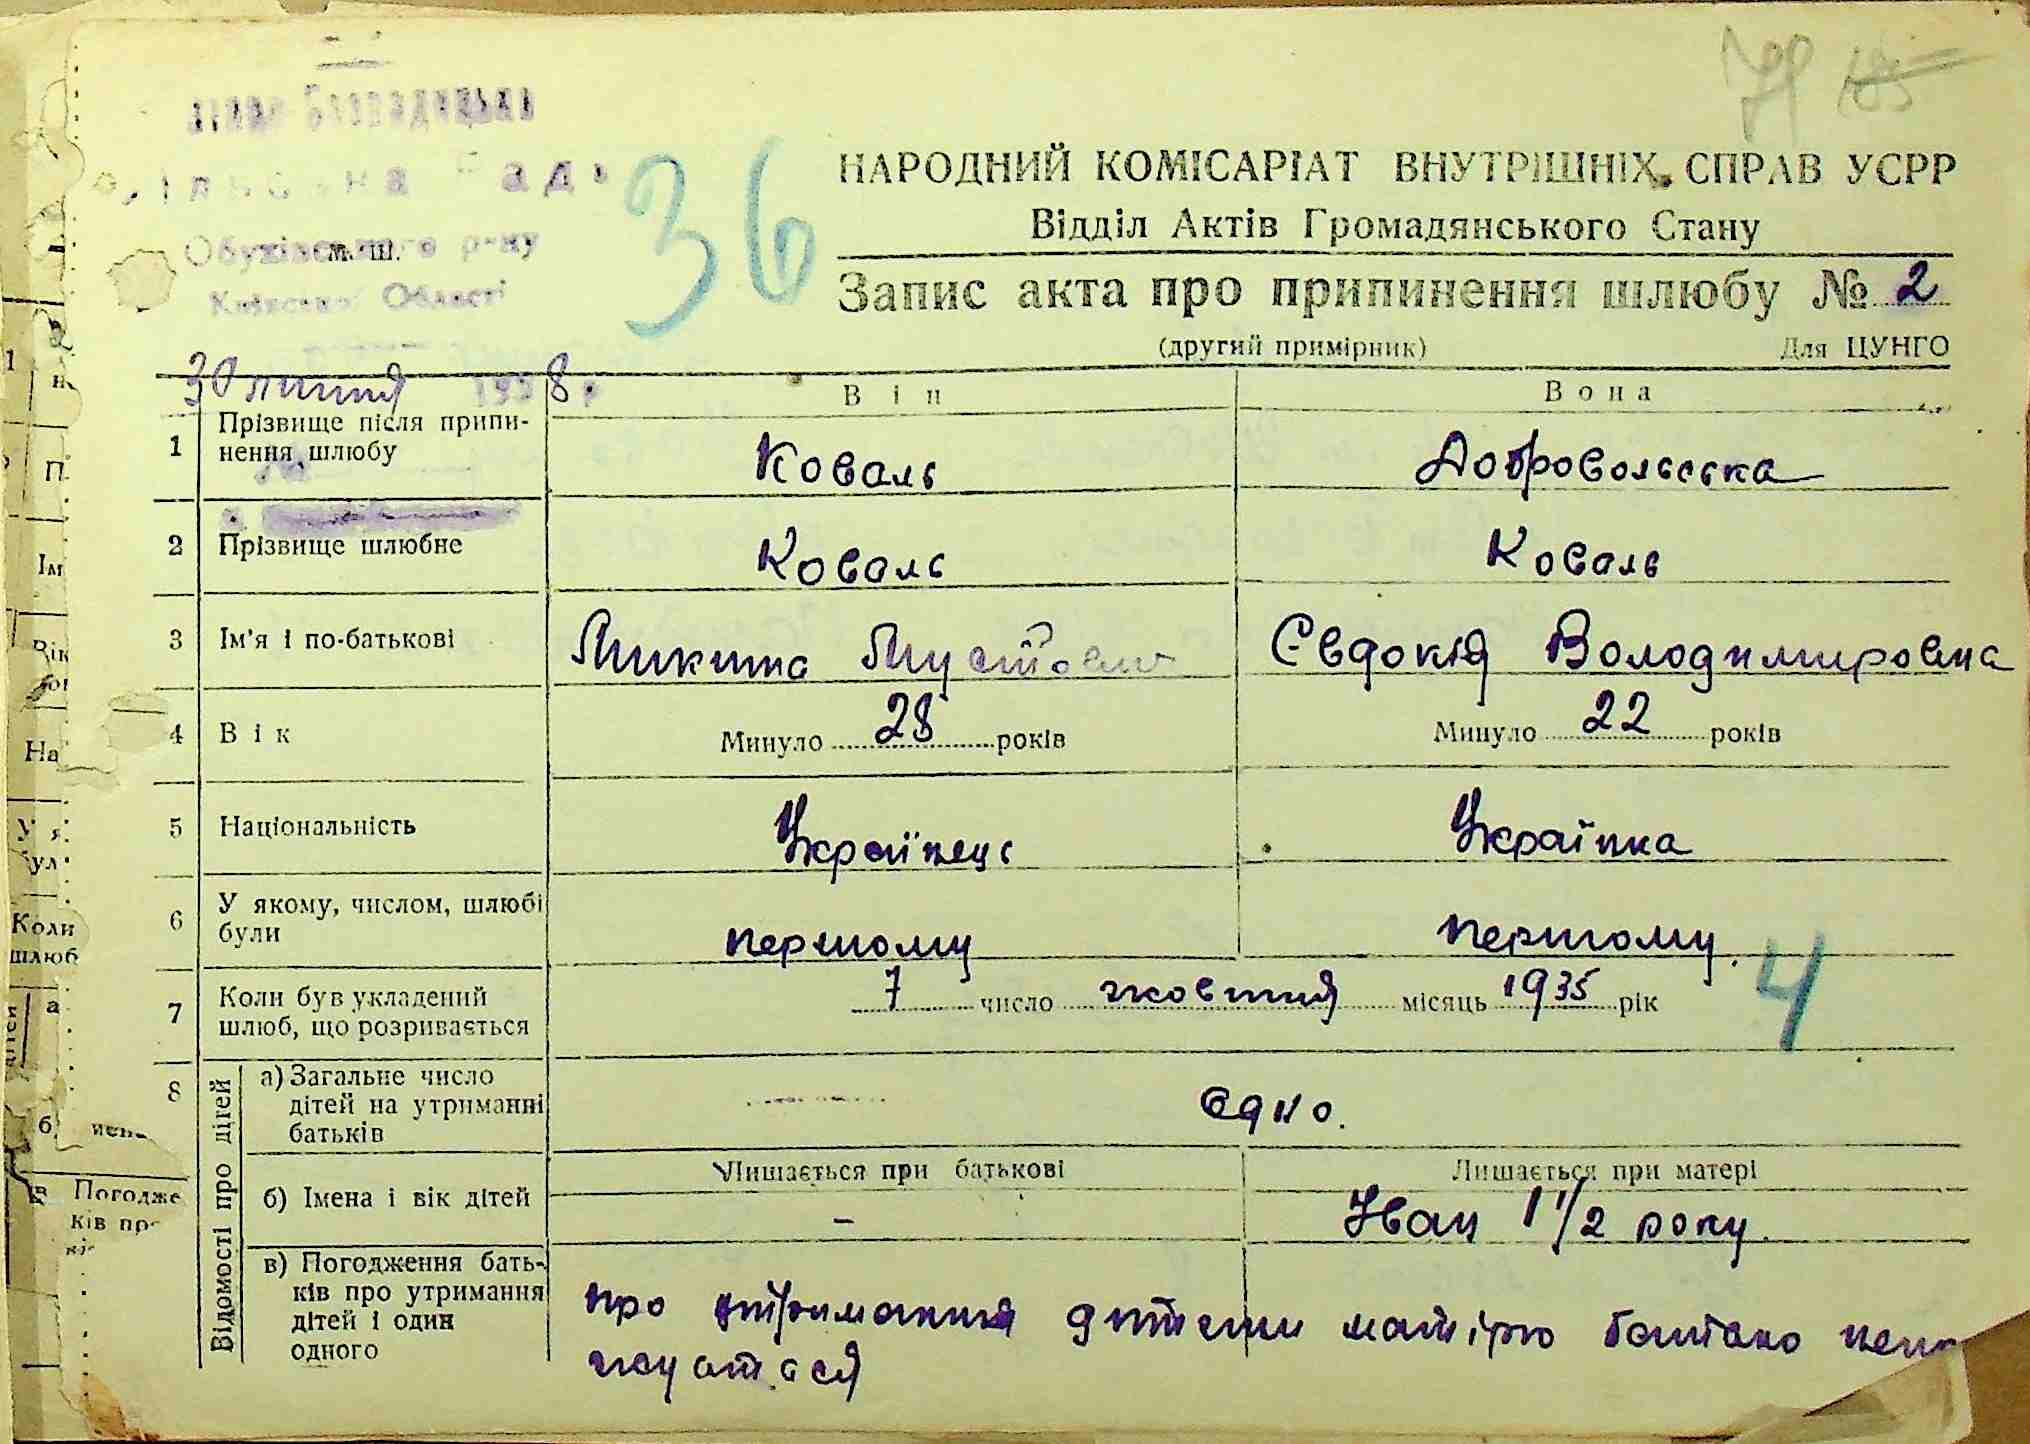 Обухівського р-ну
Київської Області
м. ш.
36
НАРОДНИЙ КОМІСАРІАТ ВНУТРІШНІХ СПРАВ УСРР
Відділ Актів Громадянського Стану
Запис акта про припинення шлюбу № 2
(другий примірник) Для ЦУНГО
30 липня 1938 р
Він Вона
1 Прізвище після припи-
нення шлюбу Коваль Добровольська
2 Прізвище шлюбне Коваль Коваль
3 Ім'я і по-батькові Микита Євдокія Володимировна
4 Вік Минуло 28 років Минуло 22 років
5 Національність Українець Українка
6 У якому, числом, шлюбі
були першому першому
7 Коли був укладений
шлюб, що розривається 7 число жовтня місяць 1935 рік
4
8 Відомості про дітей
а) Загальне число
дітей на утриманні
батьків Одно.
Лишається при батькові Лишається при матері
б) Імена і вік дітей – Іван 1 1/2 року
в) Погодження бать-
ків про утримання
дітей і один
одного
про утримання дитини матірю батько